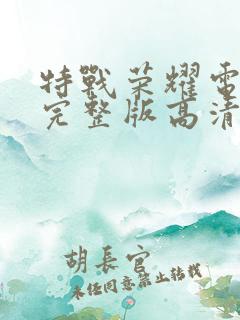 特戰荣耀雷
完整版高清
胡長官
未经同意禁止转载